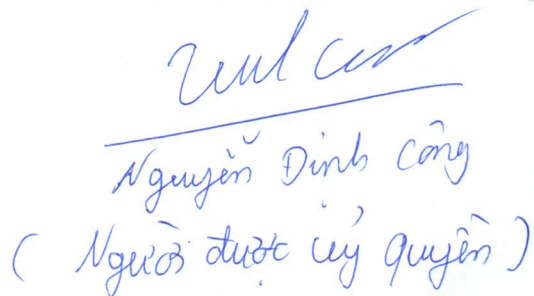 Nguyễn Đình Công
(Người được uỷ quyền)